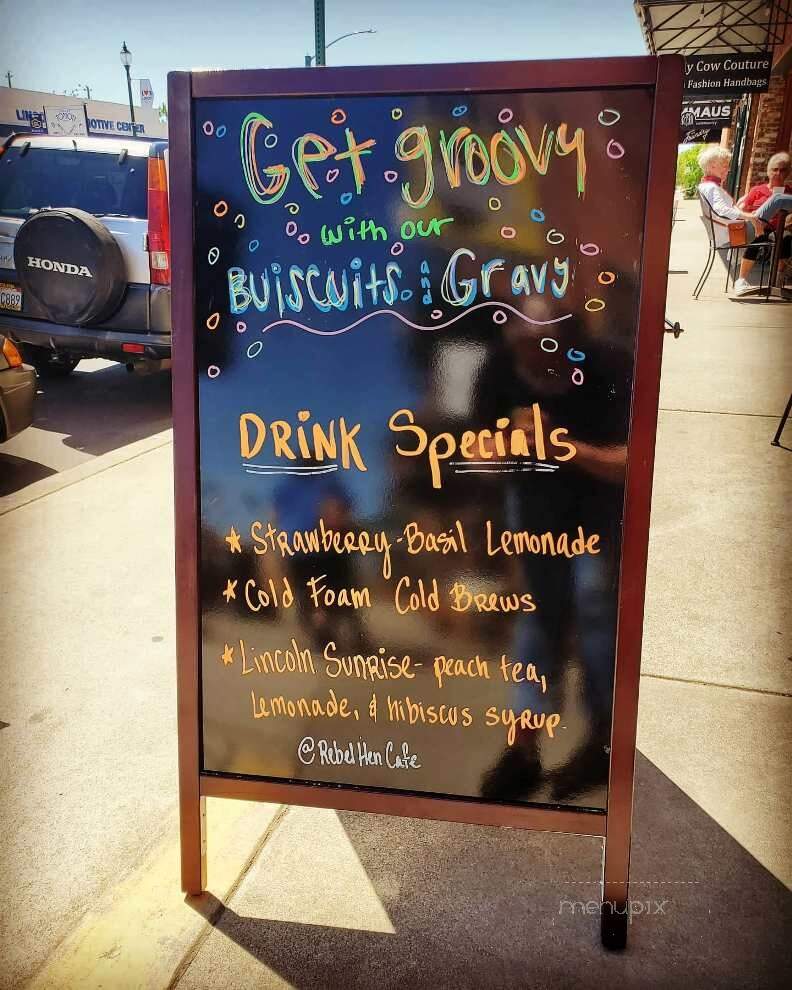 Get groovy
with our
Buiscuits and Gravy
DRINK Specials
* Strawberry-Basil Lemonade
* Cold Foam Cold Brews
* Lincoln Sunrise- peach tea,
Lemonade, & hibiscus syrup.
@RebelHenCafe
HONDA
OTIVE CENTER
y Cow Couture
Fashion Handbags
MAUS
menupix